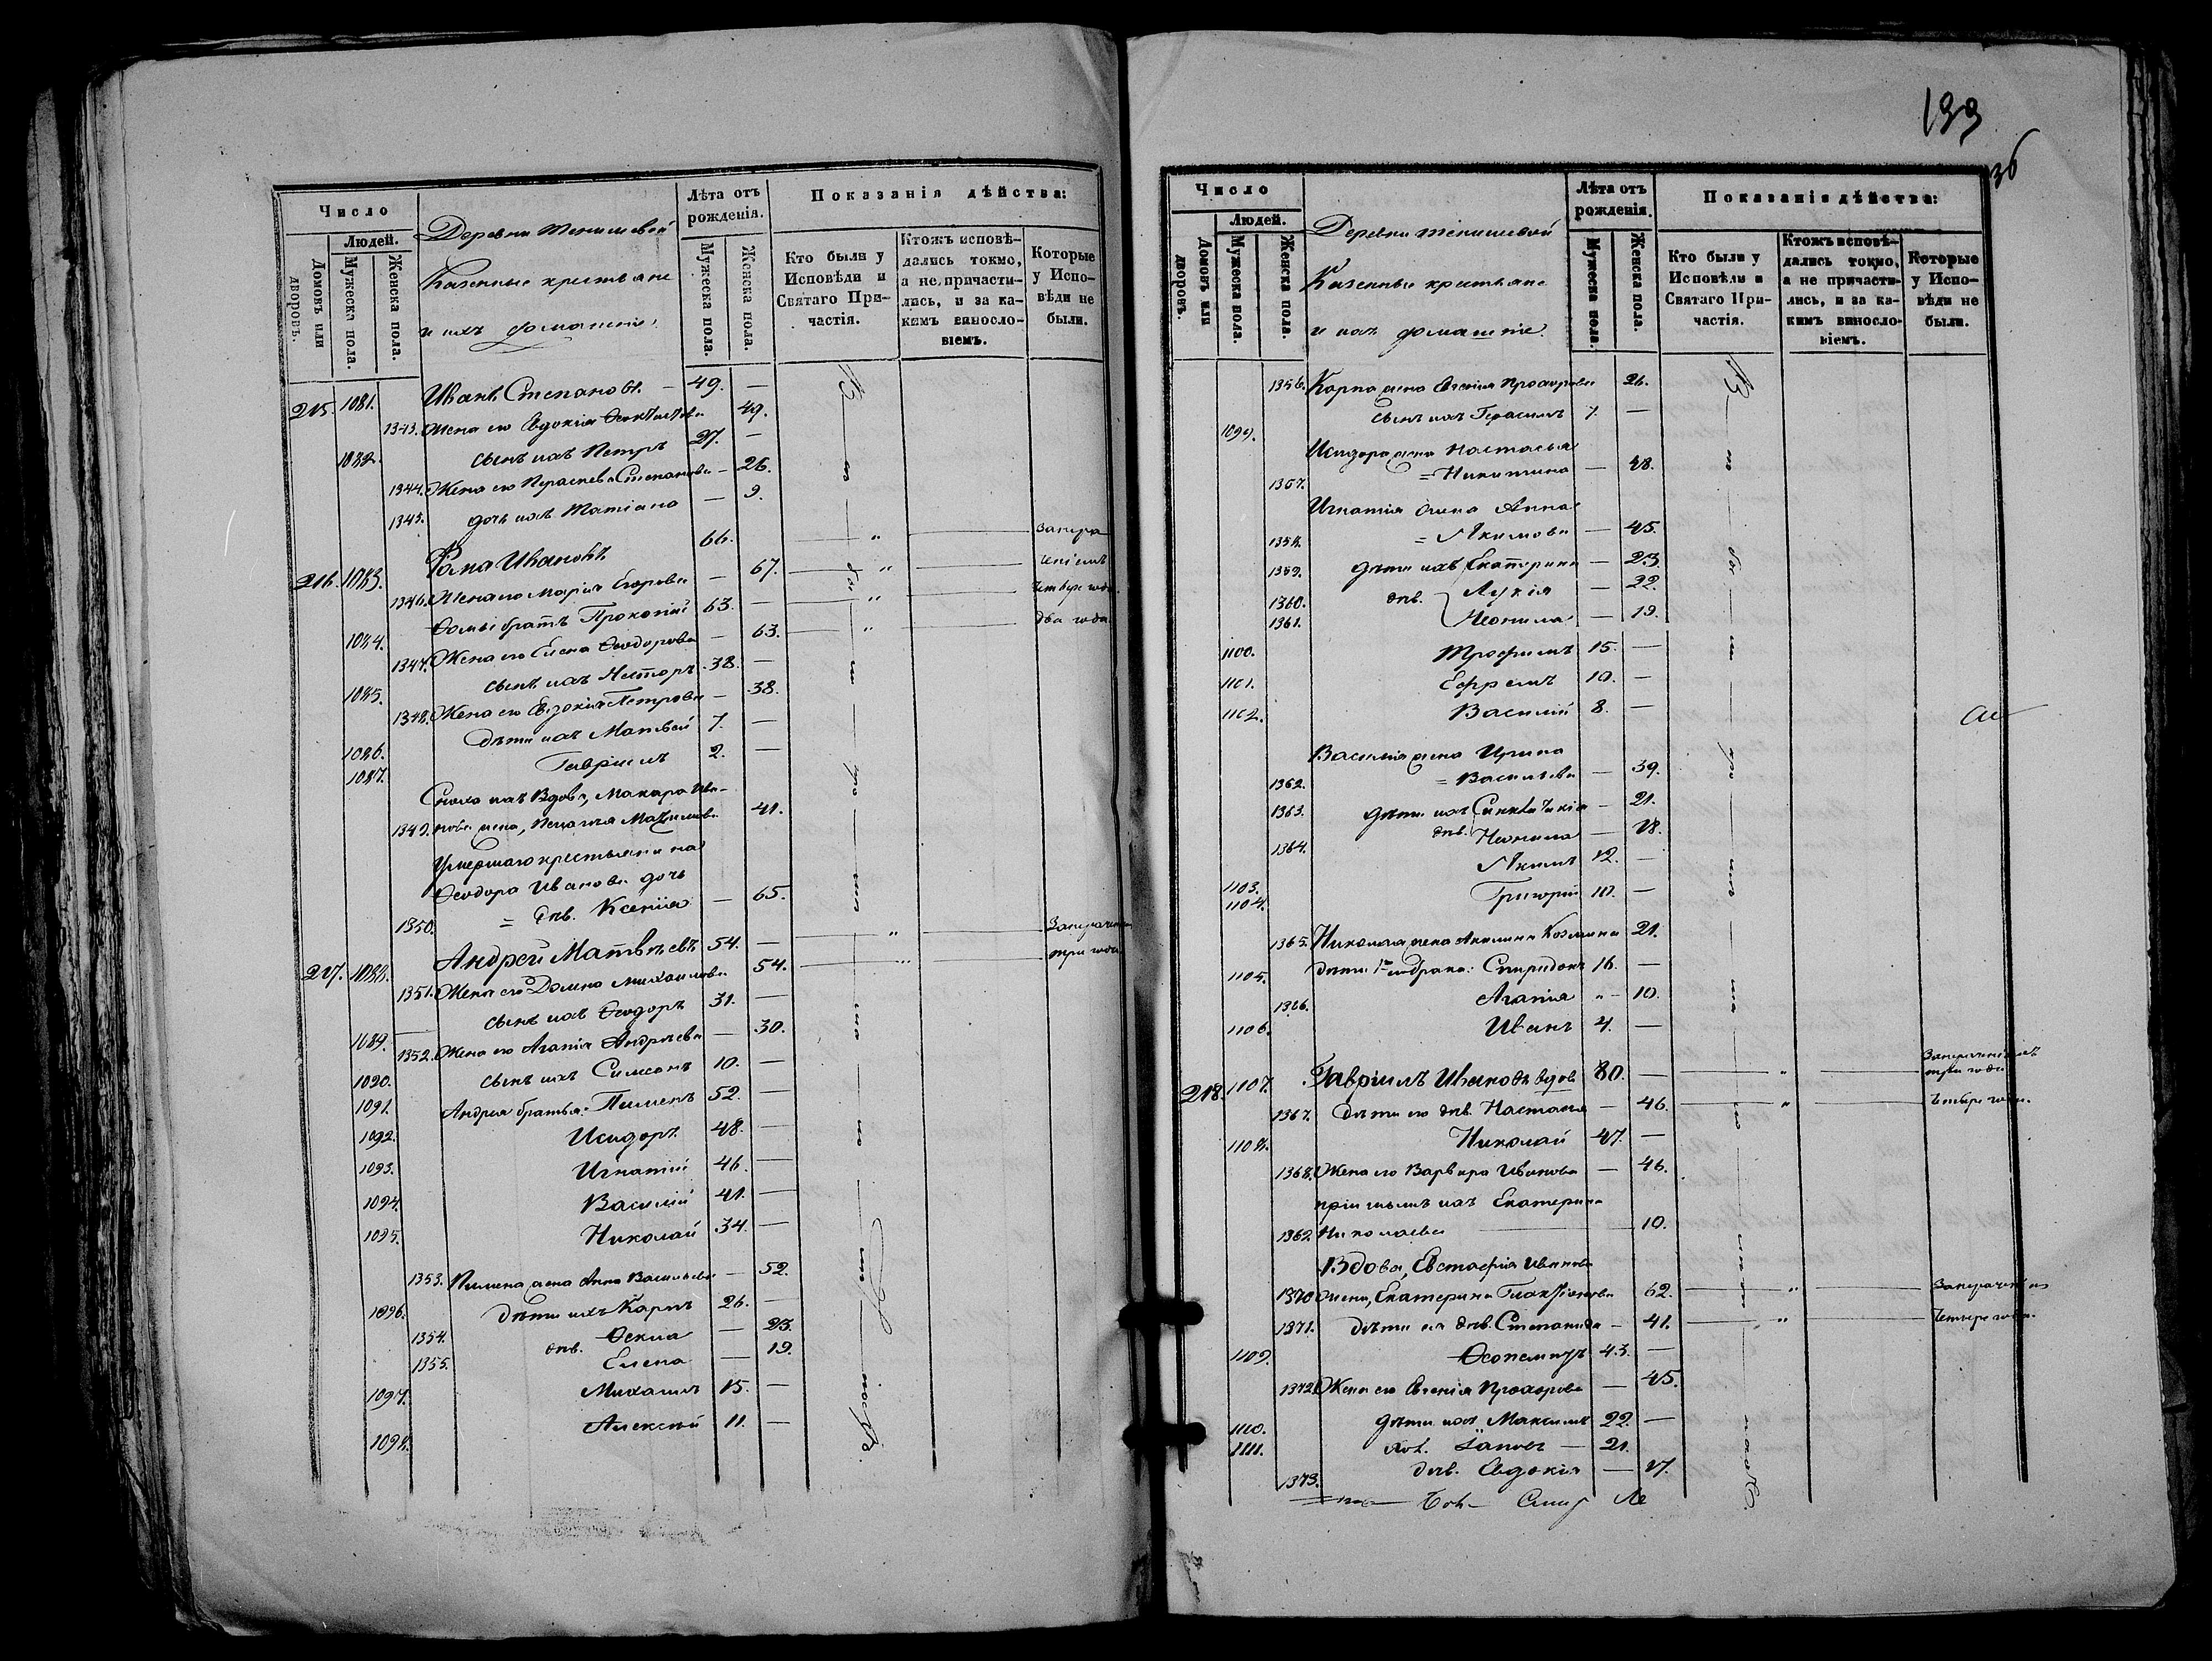 Число
Людей.
Домовъ или дворовъ.
Мужеска пола.
Женска пола.
Деревни
Казенные крестьяне
и ихъ домашніе
Лѣта отъ рожденія.
Мужеска пола.
Женска пола.
Показанія дѣйства:
Кто были у Исповѣди и Святаго Причастія.
Ктожъ исповѣдались токмо, а не причастились, и за какимъ винословіемъ.
Которые у Исповѣди не были.
215. 1081. Иванъ Степановъ — 49. —
1343. Жена его Евдокія 49.
1082. сынъ ихъ Петръ 27. —
1344. Жена его Параскева Степанова — 26.
1345. дочь ихъ Татіана — 9.
216. 1083. Фома Ивановъ 66.
1346. Жена его Марія Егорова — 67.
1084. Ѳомы братъ Прокопій 63. — четыре года.
1347. Жена его Елена Ѳеодорова — 63. два года
1085. сынъ ихъ Несторъ 38. —
1348. Жена его Евдокія Петрова — 38.
1086. дѣти ихъ Матвей 7. —
1087. Гавріилъ 2. —
Сноха ихъ Вдова, Макара Ива-
1349. нова жена, Пелагія 41.
Умершаго крестьянина
Ѳеодора Иванова дочь
1350. = дѣв. Ксенія — 65.
217. 1088. Андрей Матвѣевъ 54. —
1351. Жена его Домна Михаилова 54. три года
1089. сынъ ихъ Ѳеодоръ 31. —
1352. Жена его Агапія Андреева — 30.
1090. сынъ ихъ Симеонъ 10. —
1091. Андрея братья: Пименъ 52. —
1092. Исидоръ 48. —
1093. Игнатій 46. —
1094. Василій 41. —
1095. Николай 34. —
1353. Пимена жена Анна Васильева — 52.
1096. дѣти ихъ Карпъ 26. —
1354. дѣв. Ѳекла — 23.
1355. Елена — 19.
1097. Михаилъ 15. —
1098. Алексѣй 11. —
133
36
Число
Людей.
Домовъ или дворовъ.
Мужеска пола.
Женска пола.
Деревни
Казенные крестьяне
и ихъ домашніе
Лѣта отъ рожденія.
Мужеска пола.
Женска пола.
Показанія дѣйства:
Кто были у Исповѣди и Святаго Причастія.
Ктожъ исповѣдались токмо, а не причастились, и за какимъ винословіемъ.
Которые у Исповѣди не были.
1356. Карпа жена Евгенія Прохорова 26.
1099. сынъ ихъ Герасимъ —
Исидора жена Настасья
1357. = Никитина — 48.
Игнатія жена Анна
1358. = Акимова — 45.
1359. дѣти ихъ Екатерина — 23.
1360. дѣв. Лукія — 22.
1361. Неонила — 19.
1100. Трофимъ 15. —
1101. Ефремъ 10. —
1102. Василій 8. —
Василія жена Ирина
1362. = Васильева — 39.
1363. дѣти ихъ Синклитикія — 21.
1364. дѣв. Неонила — 18.
1103. Акимъ 12. —
1104. Григорій 10. —
1365. Николая жена Акилина Козмина 21.
1105. дѣти 1го брака: Спиридонъ 16. —
1366. Агапія — 10.
1106. Иванъ 4. —
218. 1107. Гавріилъ Ивановъ вдовъ 80. — три года
1367. Дѣти его дѣв. Настасія — 46. четыре года.
1108. Николай 47. —
1368. Жена его Варвара Иванова — 46.
пріемышъ ихъ Екатерина
1369. Николаева 10.
Вдова, Евстафія Иванова
1370. жена, Екатерина 62.
1371. дѣти ея дѣв. Степанида — 41. четыре года.
1109. Ѳеопемптъ 43. —
1372. Жена его Евгенія Прохорова — 45.
1110. дѣти ихъ Максимъ 22. —
1111. — 21.
1373. дѣв. Евдокія — 17.